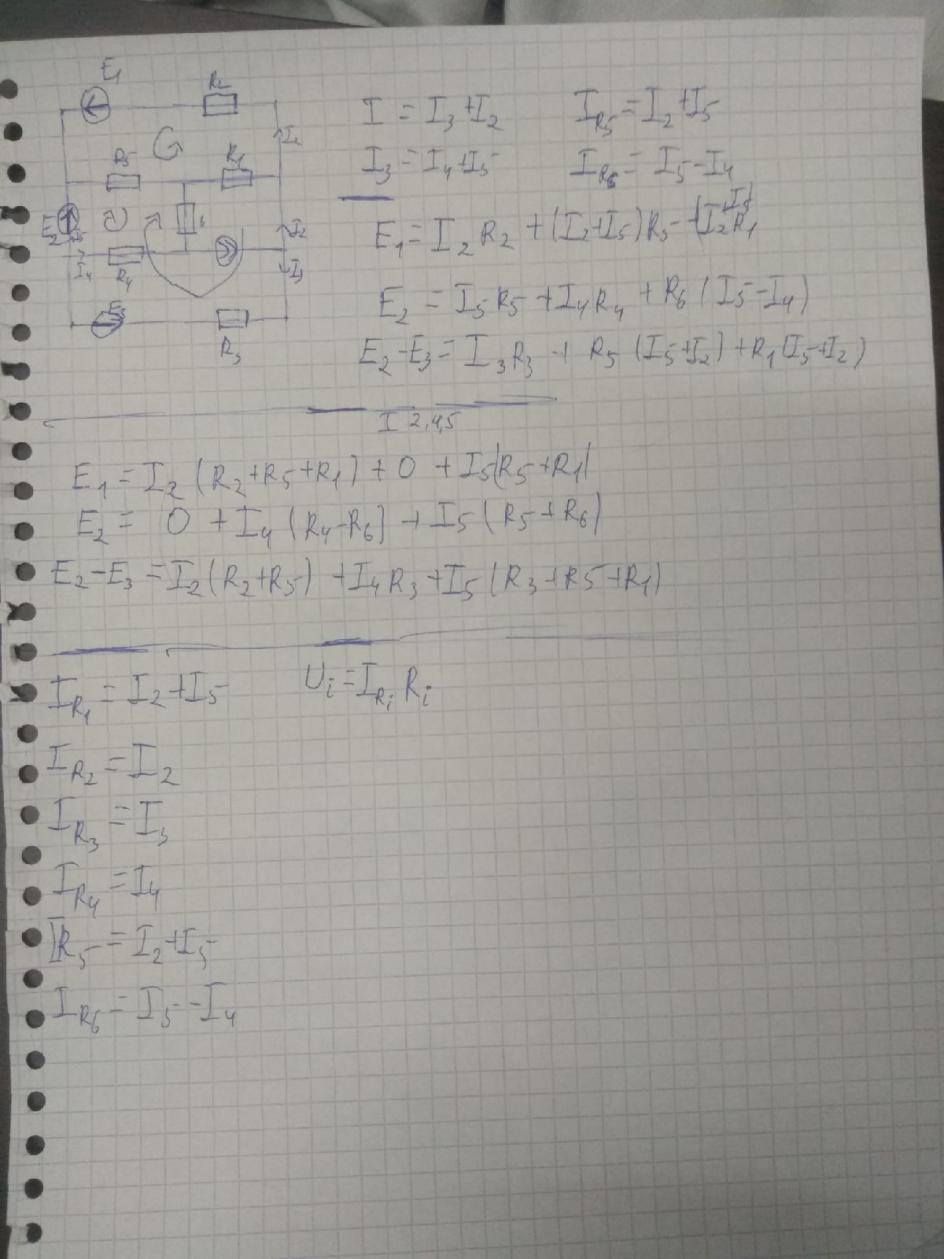 E₁ R₂
I = I₃+I₂ I_R₅ = I₂+I₅
I₂
R₅ R₁
I₃ = I₄+I₅ I_R₆ = I₅-I₄
E₂ 6 I₂
E₁ = I₂R₂ + (I₂+I₅)R₅ - (I₂+I₅)R₁
I₄ R₄ I₃
E₂ = I₅R₅ + I₄R₄ + R₆(I₅-I₄)
E₃ R₃
E₂-E₃ = I₃R₃ + R₅(I₅+I₂) + R₁(I₅+I₂)
I 2,4,5
E₁ = I₂(R₂+R₅+R₁) + 0 + I₅(R₅+R₁)
E₂ = 0 + I₄(R₄-R₆) + I₅(R₅+R₆)
E₂-E₃ = I₂(R₂+R₅) + I₄R₃ + I₅(R₃+R₅+R₁)
I_R₁ = I₂+I₅ U_i = I_R_i R_i
I_R₂ = I₂
I_R₃ = I₃
I_R₄ = I₄
I_R₅ = I₂+I₅
I_R₆ = I₅-I₄